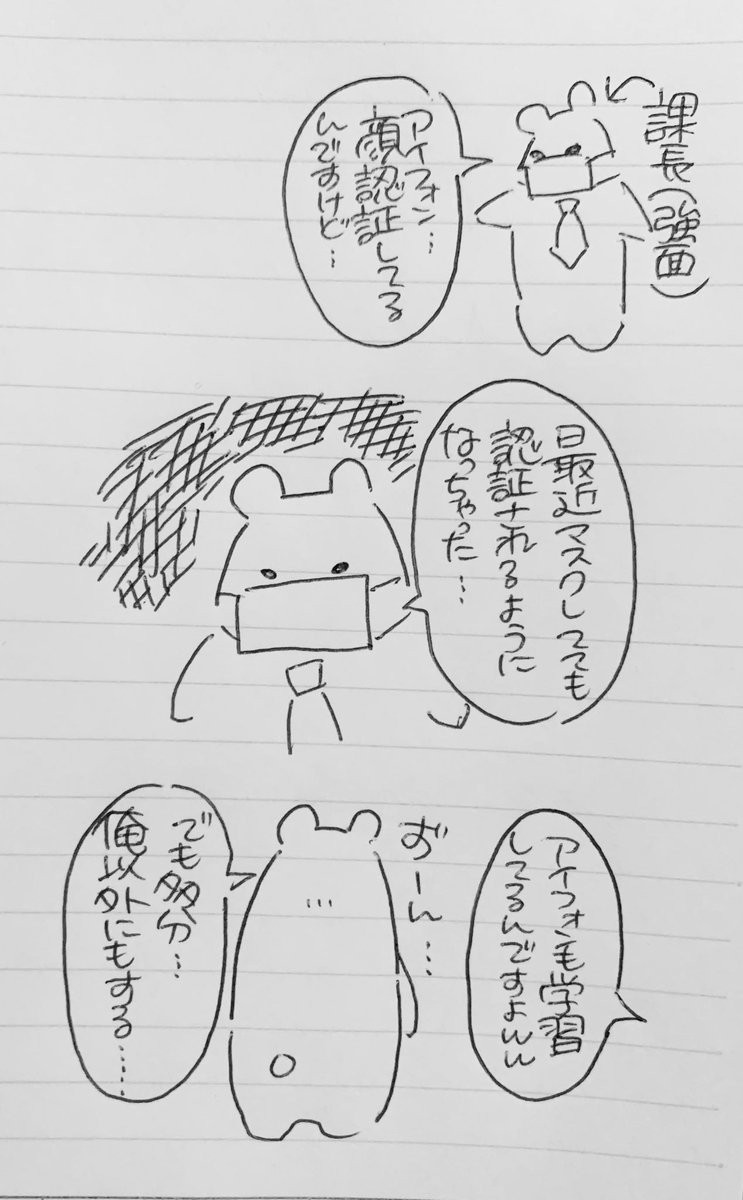 課長(強面)
アイフォン…
顔認証してる
んですけど…
最近マスクしてても
認証されるように
なっちゃった…
アイフォンも学習
してるんですよww
ずーん…
でも多分…
俺以外にもする……